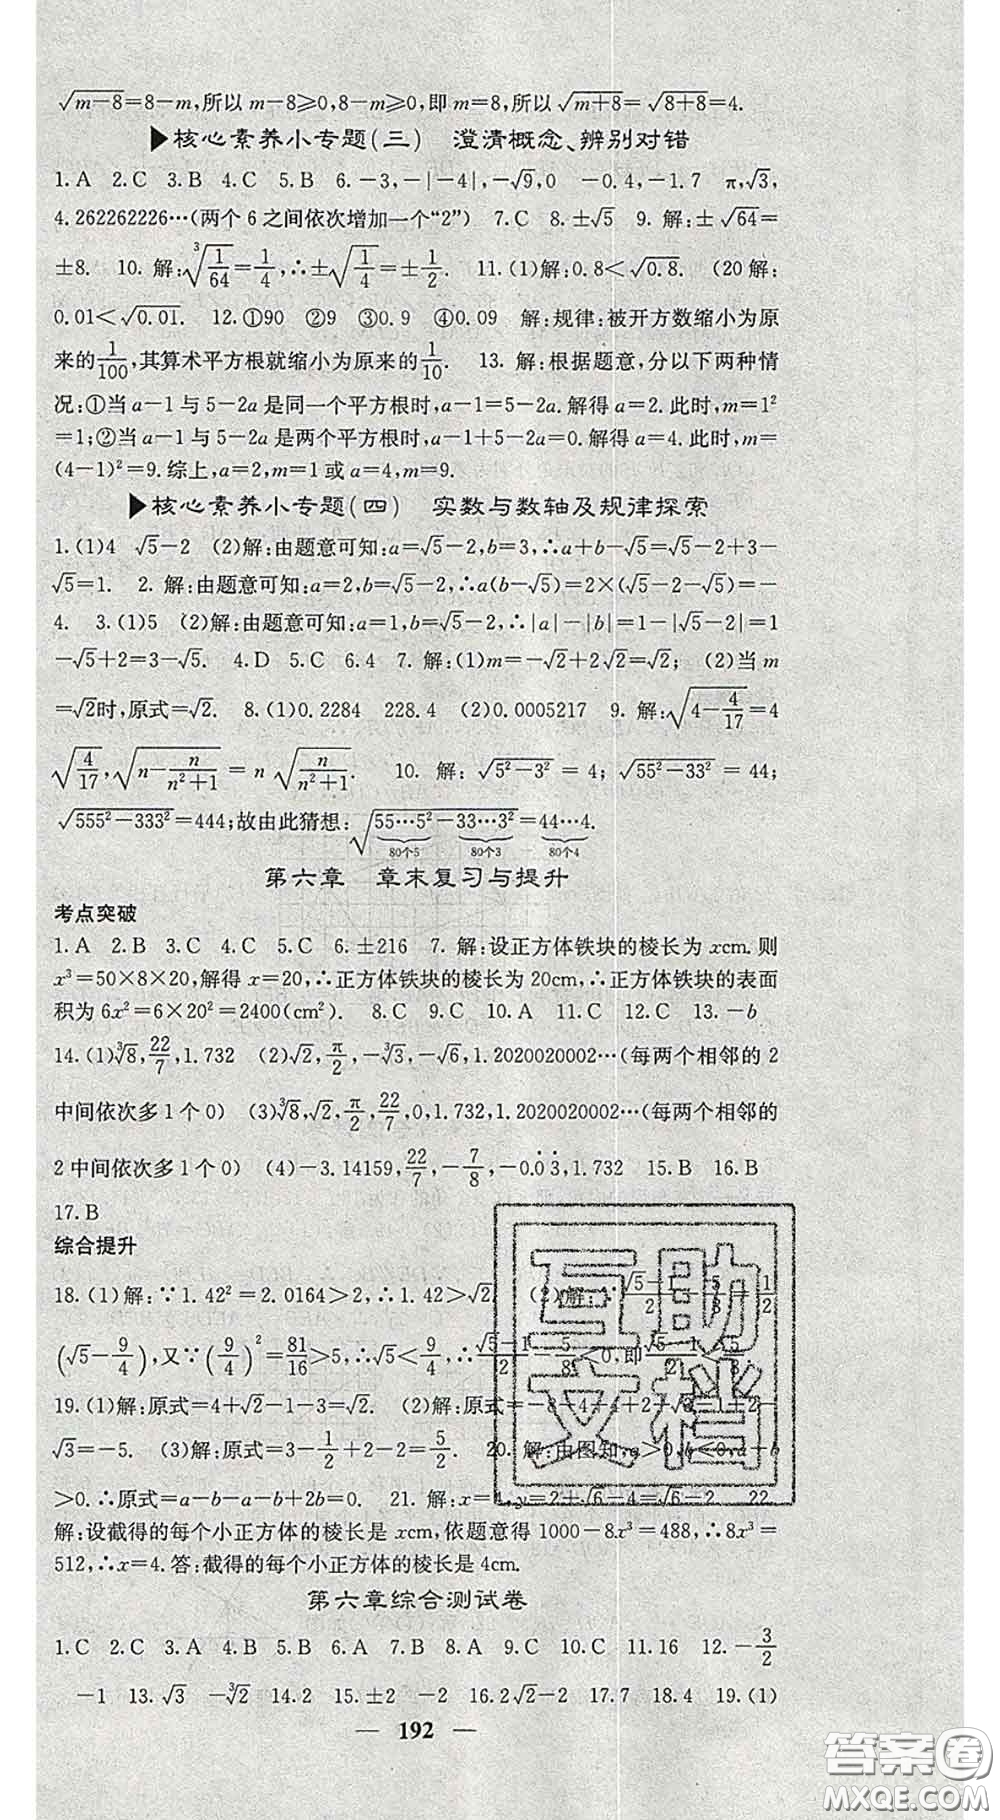 √(m−8)=8−m,所以 m−8≥0,8−m≥0,即 m=8,所以 √(m+8)=√(8+8)=4.
▶核心素养小专题(三) 澄清概念、辨别对错
1.A 2.C 3.B 4.C 5.B 6.−3,−|−4|,−√9,0 −0.4,−1.7 π,√3,
4.262262226…(两个 6 之间依次增加一个“2”) 7.C 8.±√5 9.解:±√64=
±8. 10.解:∛(1/64)=1/4,∴±√(1/4)=±1/2. 11.(1)解:0.8<√0.8. (20解:
0.01<√0.01. 12.①90 ②9 ③0.9 ④0.09 解:规律:被开方数缩小为原
来的1/100,其算术平方根就缩小为原来的1/10. 13.解:根据题意,分以下两种情
况:①当 a−1 与 5−2a 是同一个平方根时,a−1=5−2a.解得 a=2.此时,m=1²
=1;②当 a−1 与 5−2a 是两个平方根时,a−1+5−2a=0.解得 a=4.此时,m=
(4−1)²=9.综上,a=2,m=1 或 a=4,m=9.
▶核心素养小专题(四) 实数与数轴及规律探索
1.(1)4 √5−2 (2)解:由题意可知:a=√5−2,b=3,∴a+b−√5=√5−2+3−
√5=1. 2.解:由题意可知:a=2,b=√5−2,∴a(b−√5)=2×(√5−2−√5)=−
4. 3.(1)5 (2)解:由题意可知:a=1,b=√5−2,∴|a|−|b|=1−|√5−2|=1
−√5+2=3−√5. 4.D 5.C 6.4 7.解:(1)m=−√2+2√2=√2; (2)当 m
=√2时,原式=√2. 8.(1)0.2284 228.4 (2)0.0005217 9.解:√(4−4/17)=4
√(4/17),√(n−n/(n²+1))=n√(n/(n²+1)). 10.解:√(5²−3²)=4;√(55²−33²)=44;
√(555²−333²)=444;故由此猜想:√(55…5²−33…3²)=44…4.
80个5 80个3 80个4
第六章 章末复习与提升
考点突破
1.A 2.B 3.C 4.C 5.C 6.±216 7.解:设正方体铁块的棱长为 xcm.则
x³=50×8×20,解得 x=20,∴正方体铁块的棱长为 20cm,∴正方体铁块的表面
积为 6x²=6×20²=2400(cm²). 8.C 9.C 10.A 11.C 12.C 13.−b
14.(1)∛8,22/7,1.732 (2)√2,π/2,−∛3,−√6,1.2020020002…(每两个相邻的 2
中间依次多 1 个 0) (3)∛8,√2,π/2,22/7,0,1.732,1.2020020002…(每两个相邻的
2 中间依次多 1 个 0) (4)−3.14159,22/7,−7/8,−0.0̇3̇,1.732 15.B 16.B
17.B
综合提升
18.(1)解:∵1.42²=2.0164>2,∴1.42>√2. (2)解:∵(√5−1)/2−5/8=1/2
(√5−9/4),又∵(9/4)²=81/16>5,∴√5<9/4,∴(√5−1)/2−5/8<0,即(√5−1)/2<5/8.
19.(1)解:原式=4+√2−1−3=√2. (2)解:原式=−8+4−4+2+√3−1+2−
√3=−5. (3)解:原式=3−1/2+2−2=5/2. 20.解:由图知,a>0,b<0,a+b
>0.∴原式=a−b−a−b+2b=0. 21.解:x=4,y=2+√6−4=√6−2 22.
解:设截得的每个小正方体的棱长是 xcm,依题意得 1000−8x³=488,∴8x³=
512,∴x=4.答:截得的每个小正方体的棱长是 4cm.
第六章综合测试卷
1.C 2.C 3.A 4.B 5.B 6.A 7.B 8.A 9.C 10.C 11.16 12.−3/2
−1 13.√3 −∛2 14.2 15.±2 −2 16.2√2−2 17.7 18.4 19.(1)
— 192 —
互助
文档
答案圈
MXQE.COM